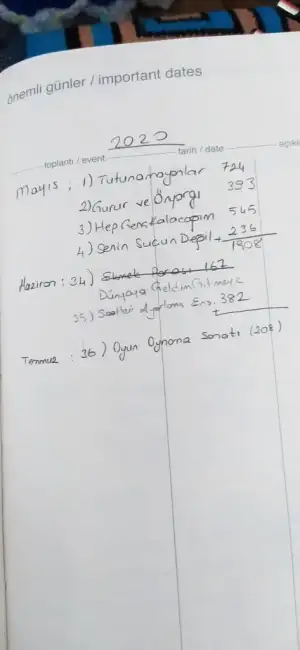 önemli günler / important dates
2020
toplantı / event
tarih / date
açıkl
Mayıs : 1) Tutunamayanlar 724
2) Gurur ve Önyargı 393
3) Hep Genç Kalacağım 565
4) Senin Suçun Değil + 236
1908
Haziran : 34) Ekmek Parası 167
Dünyaya Geldim Gitmeye
35) Saatleri Ayarlama Ens. 382
+
Temmuz : 36) Oyun Oynama Sanatı (208)